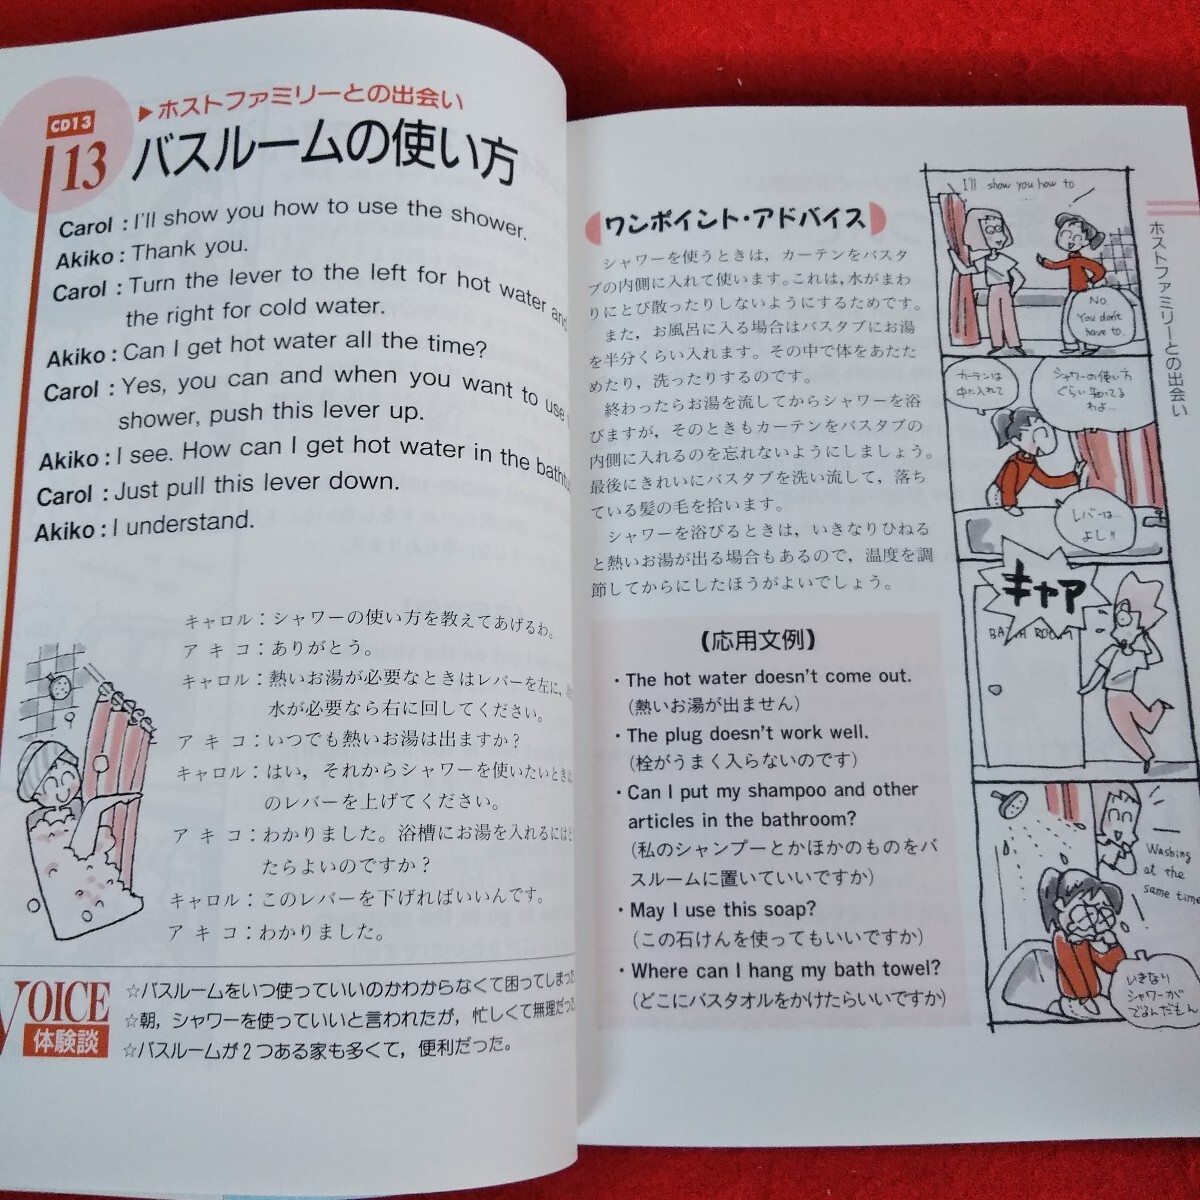 ▶ホストファミリーとの出会い
CD13
13
バスルームの使い方
Carol : I'll show you how to use the shower.
Akiko : Thank you.
Carol : Turn the lever to the left for hot water and
the right for cold water.
Akiko : Can I get hot water all the time?
Carol : Yes, you can and when you want to use
shower, push this lever up.
Akiko : I see. How can I get hot water in the
Carol : Just pull this lever down.
Akiko : I understand.
キャロル：シャワーの使い方を教えてあげるわ。
アキコ：ありがとう。
キャロル：熱いお湯が必要なときはレバーを左に，
水が必要なら右に回してください。
アキコ：いつでも熱いお湯は出ますか？
キャロル：はい，それからシャワーを使いたいときは
のレバーを上げてください。
アキコ：わかりました。浴槽にお湯を入れるには
たらよいのですか？
キャロル：このレバーを下げればいいんです。
アキコ：わかりました。
VOICE
体験談
☆バスルームをいつ使っていいのかわからなくて困ってしまった
☆朝，シャワーを使っていいと言われたが，忙しくて無理だった
☆バスルームが2つある家も多くて，便利だった。
ワンポイント・アドバイス
シャワーを使うときは，カーテンをバスタ
ブの内側に入れて使います。これは，水がまわ
りにとび散ったりしないようにするためです。
また，お風呂に入る場合はバスタブにお湯
を半分くらい入れます。その中で体をあたた
めたり，洗ったりするのです。
終わったらお湯を流してからシャワーを浴
びますが，そのときもカーテンをバスタブの
内側に入れるのを忘れないようにしましょう。
最後にきれいにバスタブを洗い流して，落ち
ている髪の毛を拾います。
シャワーを浴びるときは，いきなりひねる
と熱いお湯が出る場合もあるので，温度を調
節してからにしたほうがよいでしょう。
【応用文例】
・The hot water doesn't come out.
（熱いお湯が出ません）
・The plug doesn't work well.
（栓がうまく入らないのです）
・Can I put my shampoo and other
articles in the bathroom?
（私のシャンプーとかほかのものをバ
スルームに置いていいですか）
・May I use this soap?
（この石けんを使ってもいいですか）
・Where can I hang my bath towel?
（どこにバスタオルをかけたらいいですか）
I'll show you how to
No.
You don't
have to.
カーテンは
中に入れて
シャワーの使い方
ぐらい知ってる
わよ…
レバーは…
よし!!
キャア
BATH ROOM
Washing
at the
same time
いきなり
シャワーが
でるんだもん
ホストファミリーとの出会い